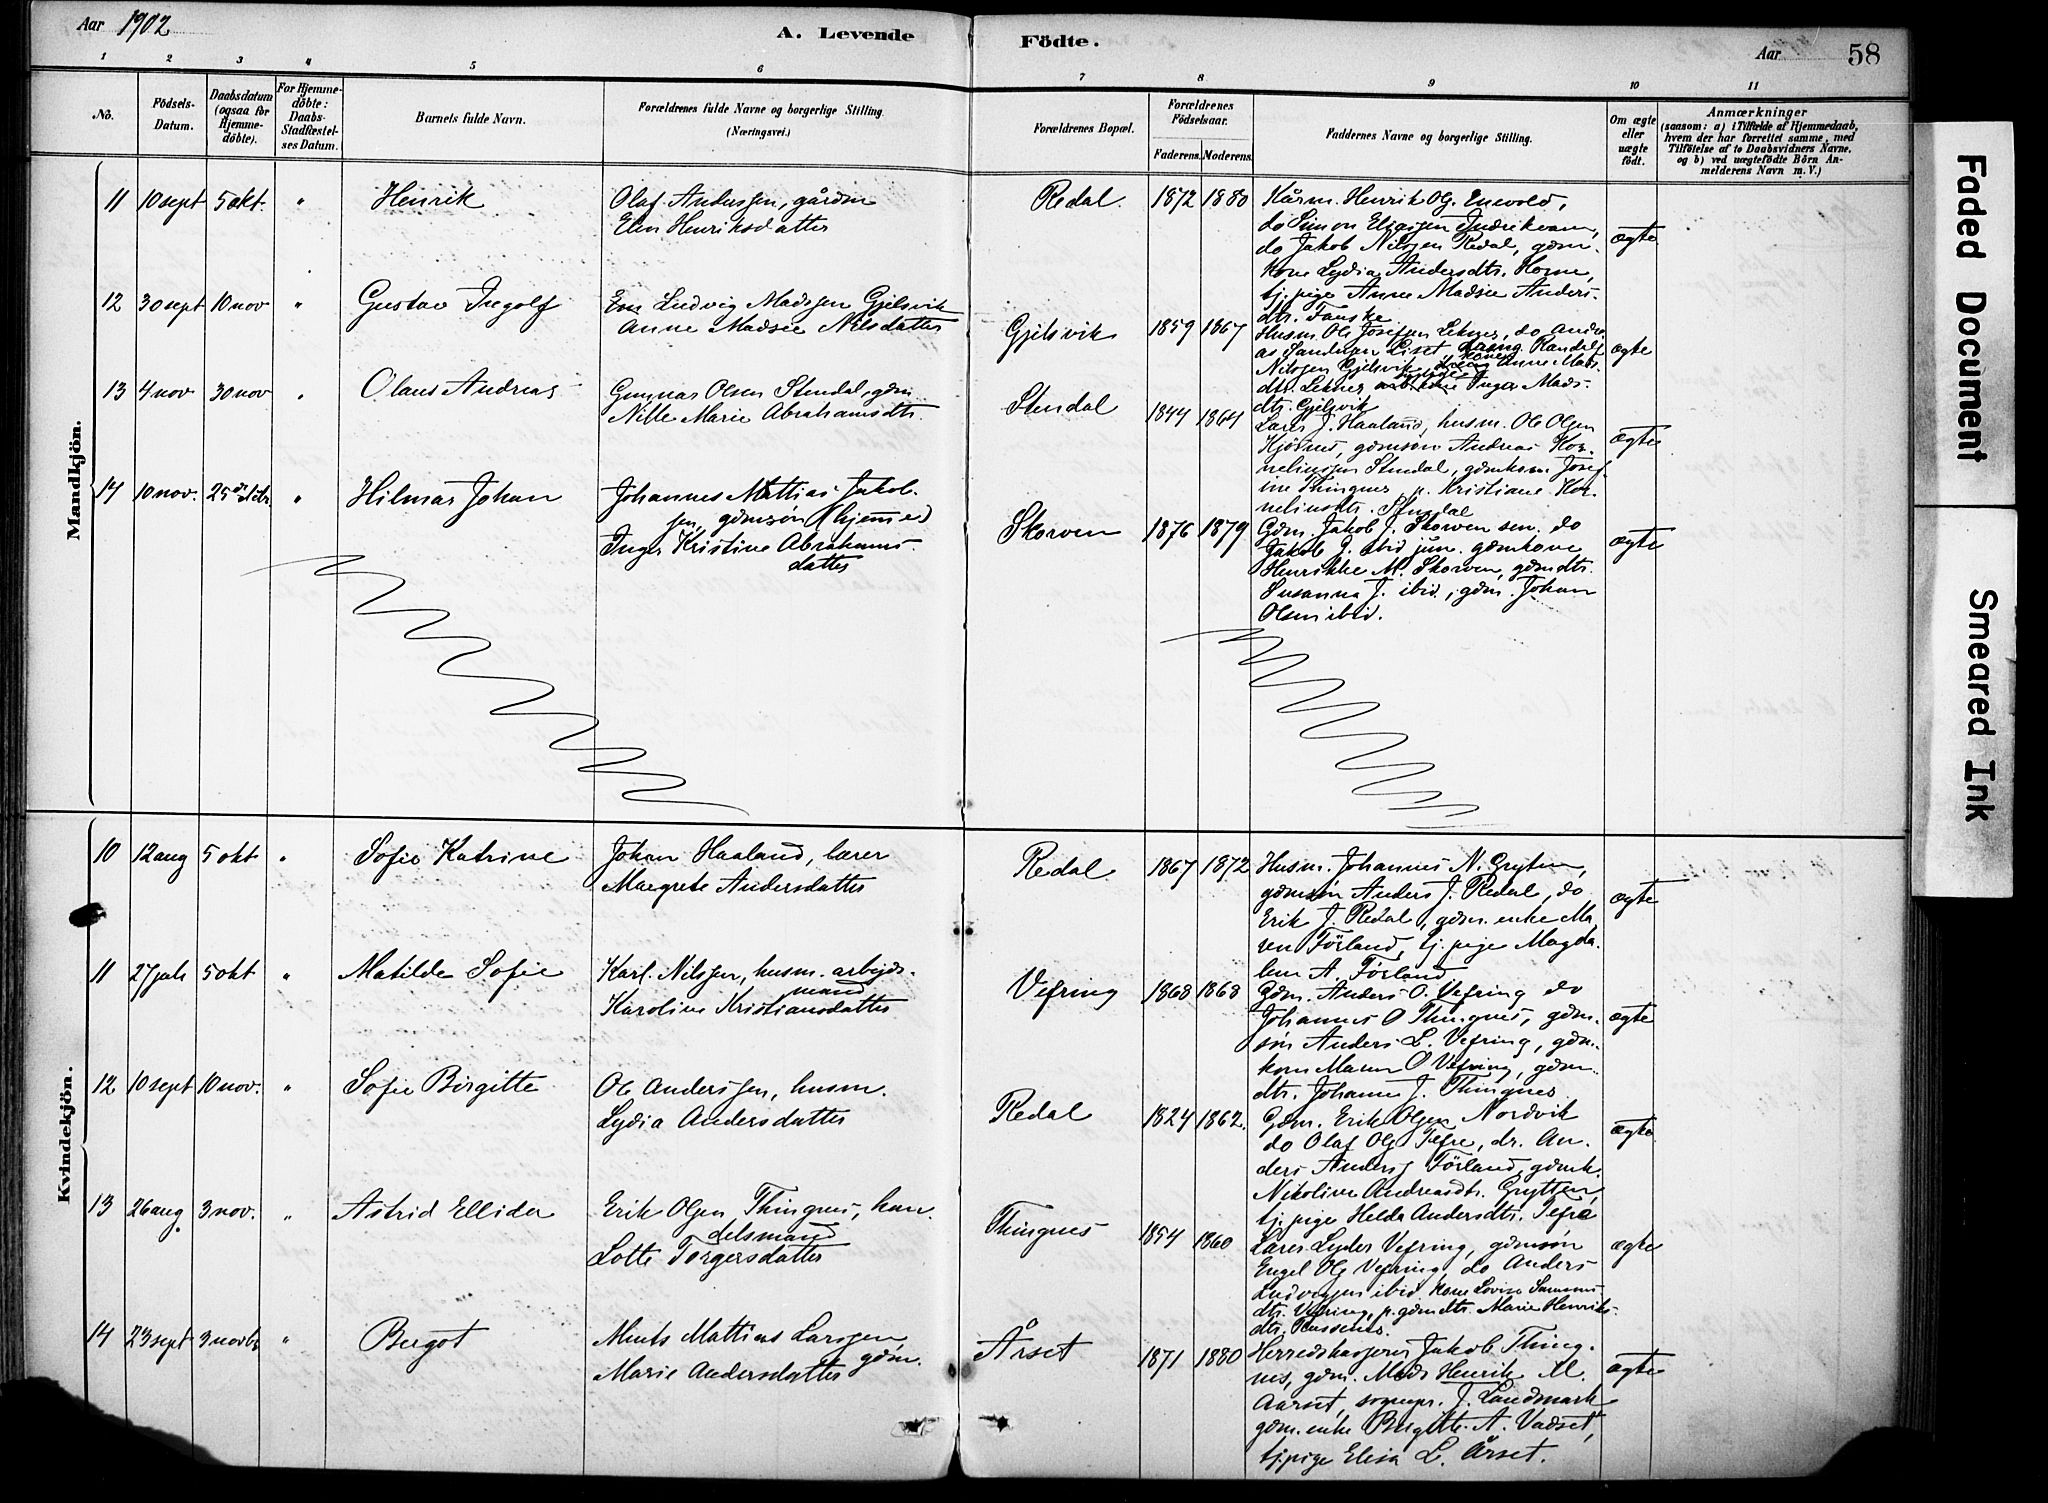 Aar 1902
A. Levende Födte.
Aar
58
1 2 3 4 5 6 7 8 9 10 11
No.
Födsels-Datum.
Daabsdatum (ogsaa for Hjemme-döbte).
For Hjemme-döbte: Daabs-Stadfæstel-ses Datum.
Barnets fulde Navn.
Forældrenes fulde Navne og borgerlige Stilling. (Næringsvei.)
Forældrenes Bopæl.
Forældrenes Födselsaar.
Faderens. Moderens.
Faddernes Navne og borgerlige Stilling.
Om ægte eller uægte födt.
Anmærkninger
(saasom: a) i Tilfælde af Hjemmedaab,
hvem der har forrettet samme, med
Tilföielse af to Daabsvidners Navne,
og b) ved uægtefödte Börn An-
melderens Navn m. V.)
Mandkjön.
11 10 sept 5 okt. " Henrik
Olaf Anderssen, gårdm
Elen Henriksdatter
Redal 1872 1880
Kårm. Henrik Ols. Enevold,
do Simon Eliassen Indrekvam,
do Jakob Nilssen Redal, gdm.
kone Lydia Andersdtr. Horne,
tj. pige Anne Madsie Anders-
dtr. Fauske.
ægte
12 30 sept 10 nov " Gustav Ingolf
Ludvig Madssen Gjelsvik
Anne Madsie Nilsdatter
Gjelsvik 1859 1867
Husm. Ole Josefssen Lekner, do Andre
as Sandersen Liset, Randulf
Nilssen Gjelsvik, Anne Mads
dtr. Lekner Inger Mads-
dtr. Gjelsvik
ægte
13 4 nov 30 nov " Olaus Andreas
Gunnar Olsen Stendal, gdm
Nille Marie Abrahamsdtr.
Stendal 1844 1864
Lærer J. Haaland, husm. Ole Olsen
Kjösnes, gdmsön Andreas Kor-
neliussen Stendal, gdmkone Josef
ine Thingnes p. Kristiane Kor-
neliusdtr. Stendal
ægte
14 10 nov. 25 decbr. " Hilmar Johan
Johannes Mattias Jakob-
sen, gdmsön (hjemme)
Inger Kristine Abrahams-
datter
Skorven 1876 1879
Gdm. Jakob J. Skorven sen. do
Jakob J. ibid jun. gdmkone
Henrikke M. Skorven, gdmdtr.
Susanna J. ibid., gdm. Johan
Olsen ibid.
ægte
Kvindekjön.
10 12 aug 5 okt " Sofie Katrine
Johan Haaland, lærer
Margrete Andersdatter
Redal 1867 1872
Husm. Johannes N. Grytten,
gdmsön Anders J. Redal, do
Erik J. Redal, gdm. enke Ma
ren Förland, tj. pige Magda-
lene A. Förland
ægte
11 27 juli 5 okt " Matilde Sofie
Karl Nilssen, husm. arbejds-
mand
Karoline Kristiansdatter
Vefring 1868 1868
Gdm. Anders O. Vefring do
Johannes O Thingnes, gdm-
sön Anders L. Vefring, gdm.
kone Maren O Vefring, gdm
dtr. Johanne J. Thingnes
ægte
12 10 sept 10 nov. " Sofie Birgitte
Ole Anderssen, husm.
Lydia Andersdatter
Redal 1824 1862.
Gdm. Erik Olsen Nordvik
do Olaf Ols Tefre, do. An-
ders Anders Förland, gdmk.
Nikoline Andreasdtr. Grytten,
tj. pige Helda Andersdtr. Tefre
ægte
13 26 aug 3 nov. " Astrid Ellida
Erik Olsen Thingnes, han-
delsmand
Lotte Torgersdatter
Thingnes 1854 1860
Lærer Lyder Vefring, gdmsön
Engel Ols Vefring do Anders
Ludvigsen ibid kone Lovise Samuns-
dtr. Vefring, p. gdmdtr. Marie Henriks-
dtr. Russenes.
ægte
14 23 sept 3 novbr " Bergot
Ments Mattias Larssen
gdm.
Marie Andersdatter
Årset 1871 1880
Herredskasserer Jakob Thing-
nes, gdm. Mads Henrik M.
Aarset, sognepr. J. Landmark
gdm. enke Birgitte A. Vadset,
tj. pige Elisa L. Årset.
ægte
Faded Document
Smeared Ink